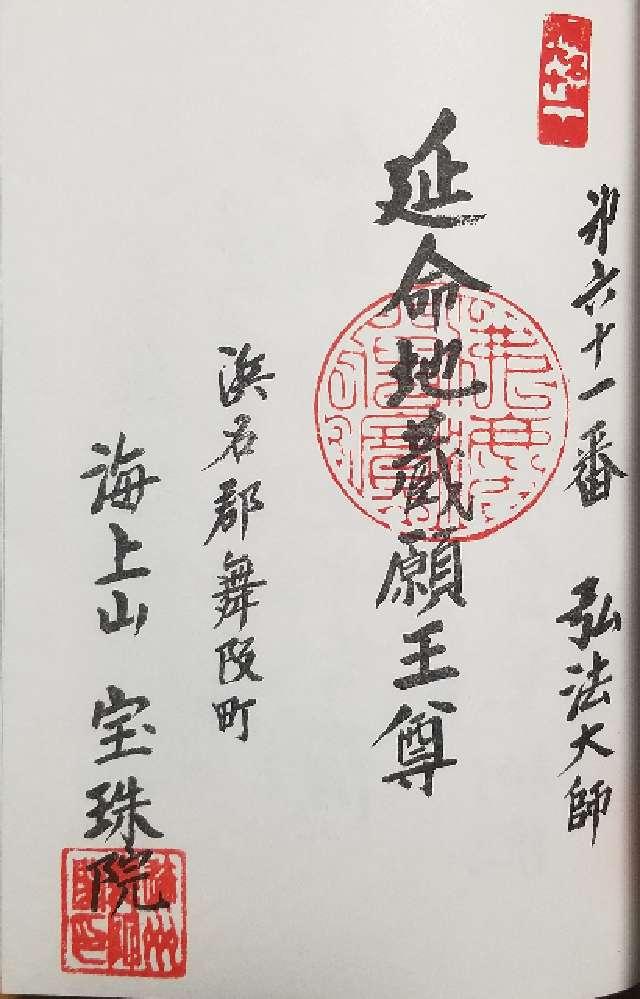 第六十一番 弘法大師
延命地蔵願王尊
浜名郡舞阪町
海上山 宝珠院